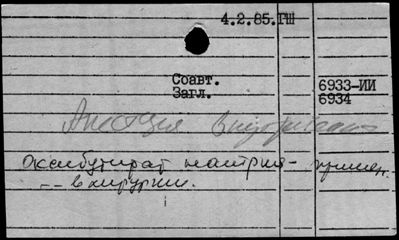 4.2.85.ГШ
Соавт.
Загл.
6933-ИИ
6934
Анестезия внутривенная
Оксибутират натрия - примен.
-- в хирургии.